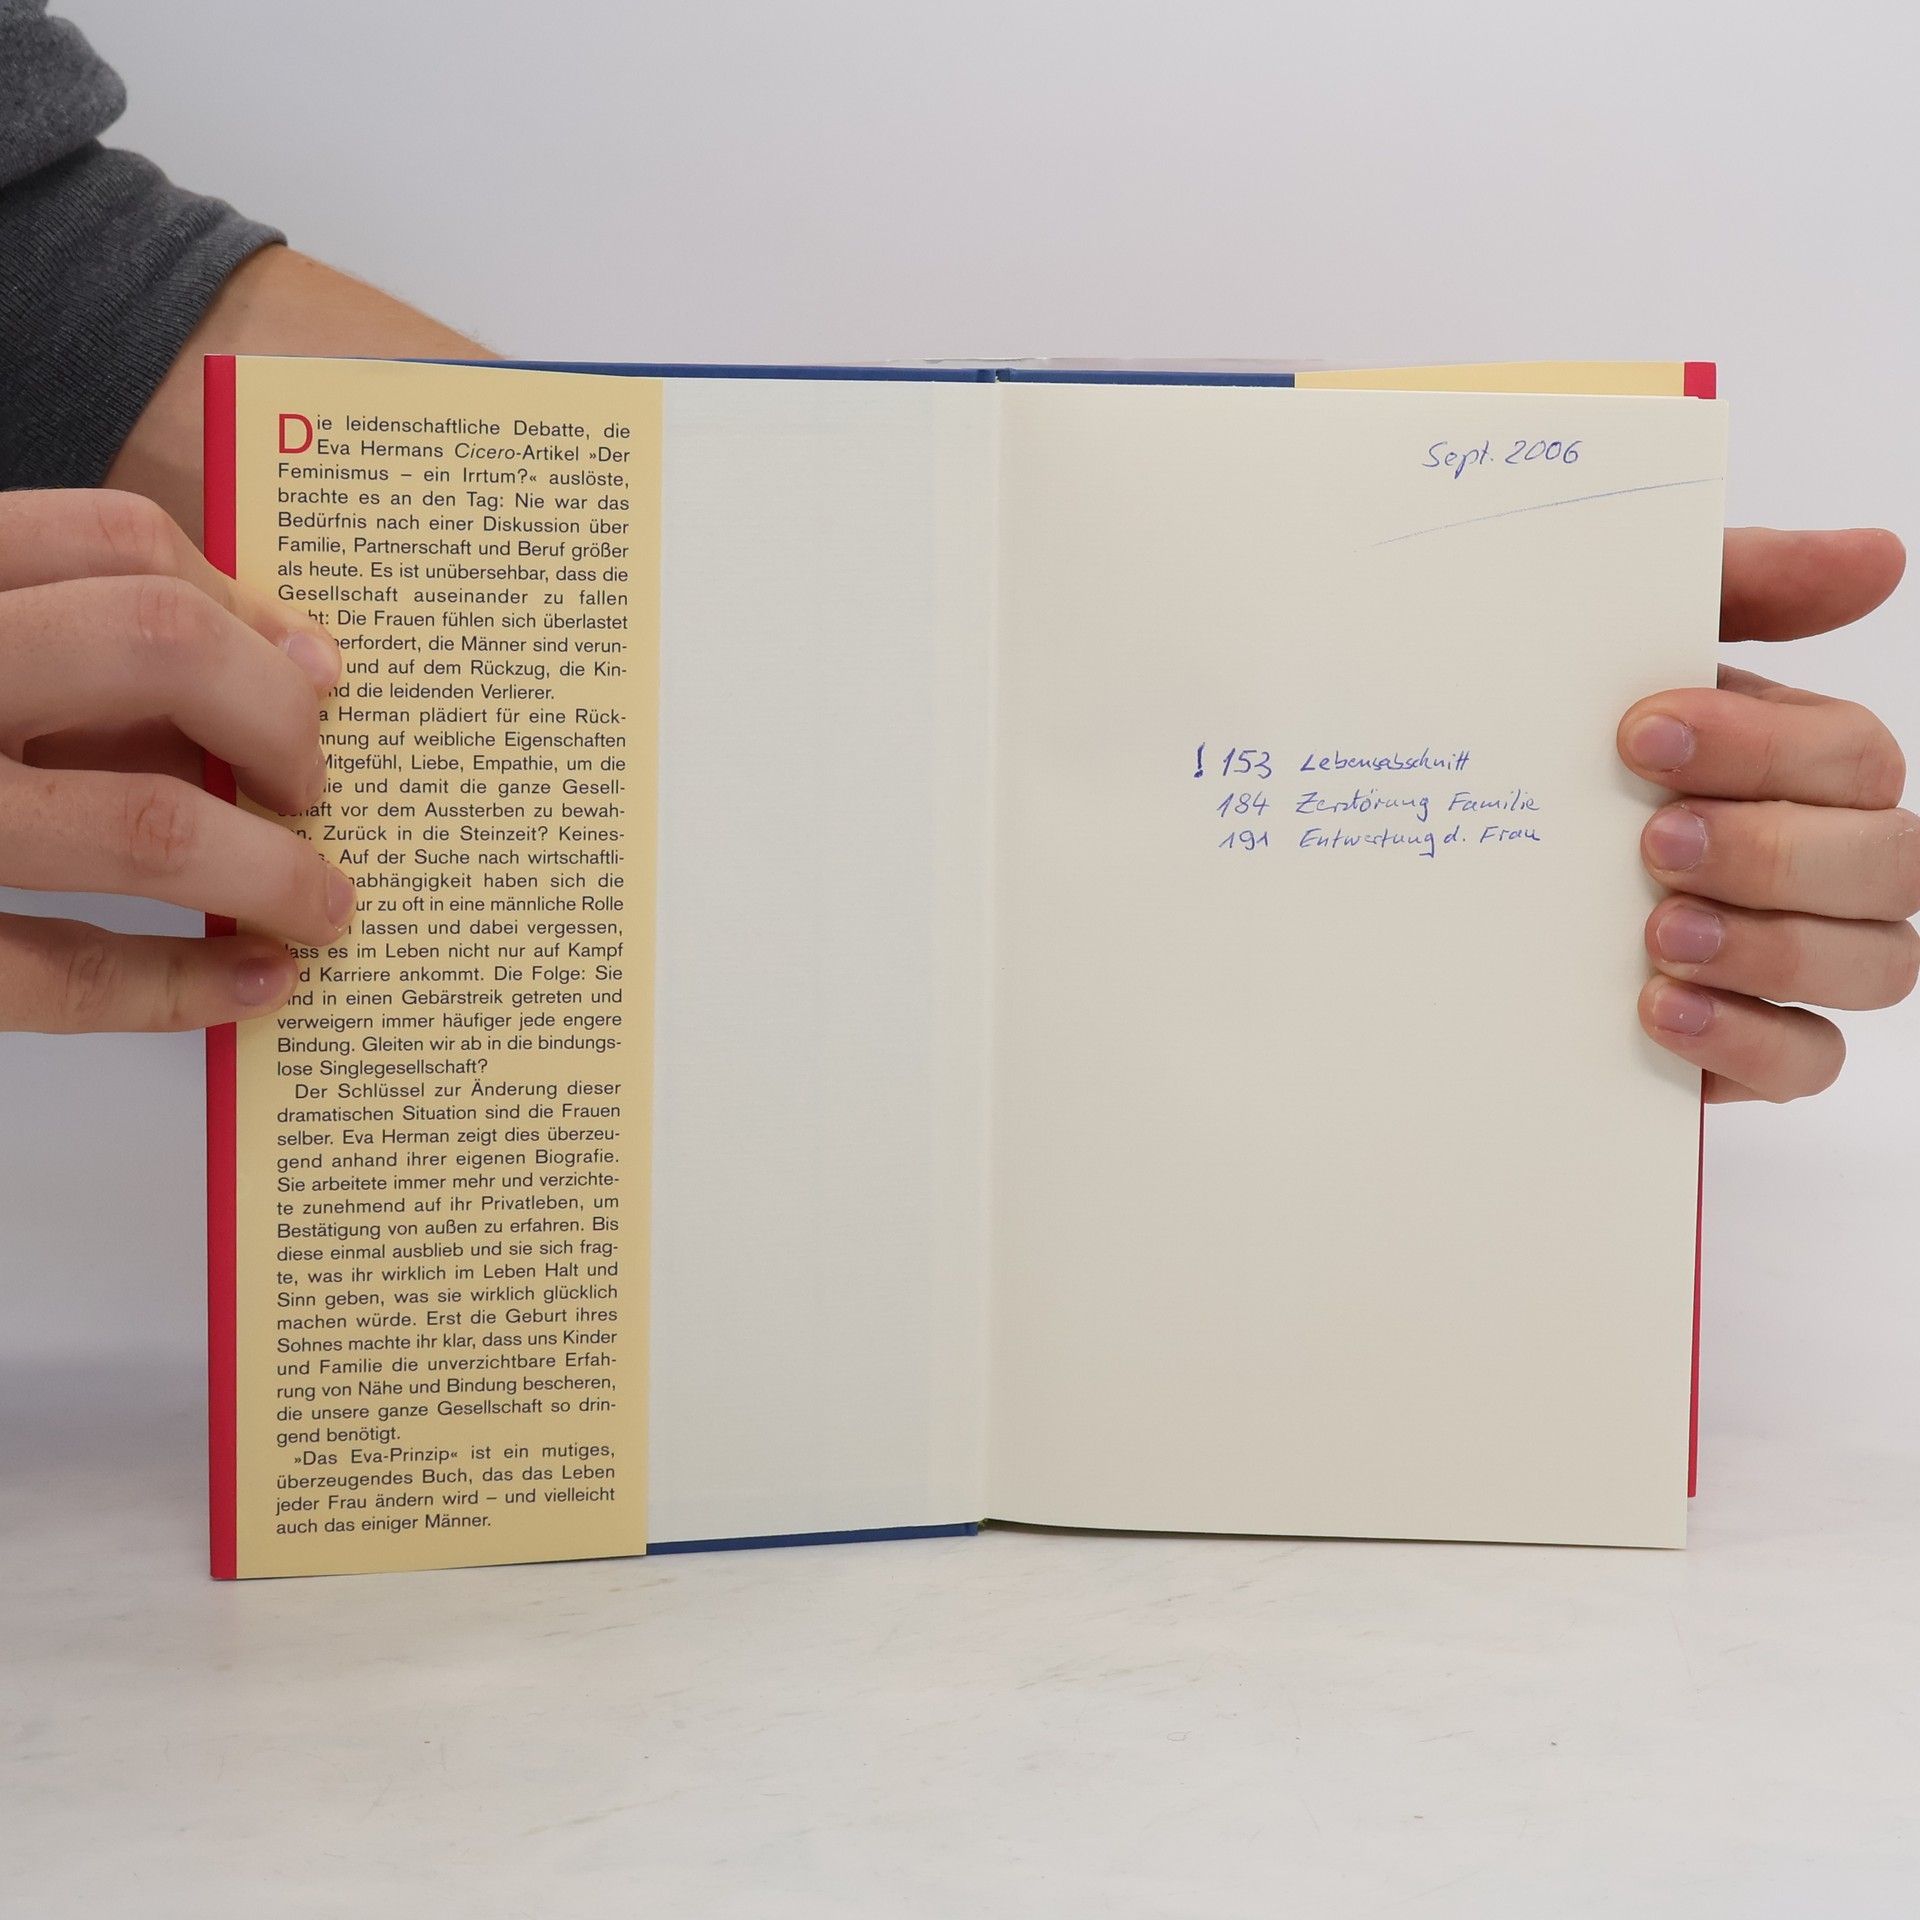 Die leidenschaftliche Debatte, die
Eva Hermans Cicero-Artikel »Der
Feminismus – ein Irrtum?« auslöste,
brachte es an den Tag: Nie war das
Bedürfnis nach einer Diskussion über
Familie, Partnerschaft und Beruf größer
als heute. Es ist unübersehbar, dass die
Gesellschaft auseinander zu fallen
ht: Die Frauen fühlen sich überlastet
berfordert, die Männer sind verun-
und auf dem Rückzug, die Kin-
nd die leidenden Verlierer.
a Herman plädiert für eine Rück-
nnung auf weibliche Eigenschaften
Mitgefühl, Liebe, Empathie, um die
lie und damit die ganze Gesell-
schaft vor dem Aussterben zu bewah-
en. Zurück in die Steinzeit? Keines-
s. Auf der Suche nach wirtschaftli-
nabhängigkeit haben sich die
ur zu oft in eine männliche Rolle
n lassen und dabei vergessen,
dass es im Leben nicht nur auf Kampf
nd Karriere ankommt. Die Folge: Sie
sind in einen Gebärstreik getreten und
verweigern immer häufiger jede engere
Bindung. Gleiten wir ab in die bindungs-
lose Singlegesellschaft?
Der Schlüssel zur Änderung dieser
dramatischen Situation sind die Frauen
selber. Eva Herman zeigt dies überzeu-
gend anhand ihrer eigenen Biografie.
Sie arbeitete immer mehr und verzichte-
te zunehmend auf ihr Privatleben, um
Bestätigung von außen zu erfahren. Bis
diese einmal ausblieb und sie sich frag-
te, was ihr wirklich im Leben Halt und
Sinn geben, was sie wirklich glücklich
machen würde. Erst die Geburt ihres
Sohnes machte ihr klar, dass uns Kinder
und Familie die unverzichtbare Erfah-
rung von Nähe und Bindung bescheren,
die unsere ganze Gesellschaft so drin-
gend benötigt.
»Das Eva-Prinzip« ist ein mutiges,
überzeugendes Buch, das das Leben
jeder Frau ändern wird – und vielleicht
auch das einiger Männer.
Sept. 2006
! 153 Lebensabschnitt
184 Zerstörung Familie
191 Entwertung d. Frau